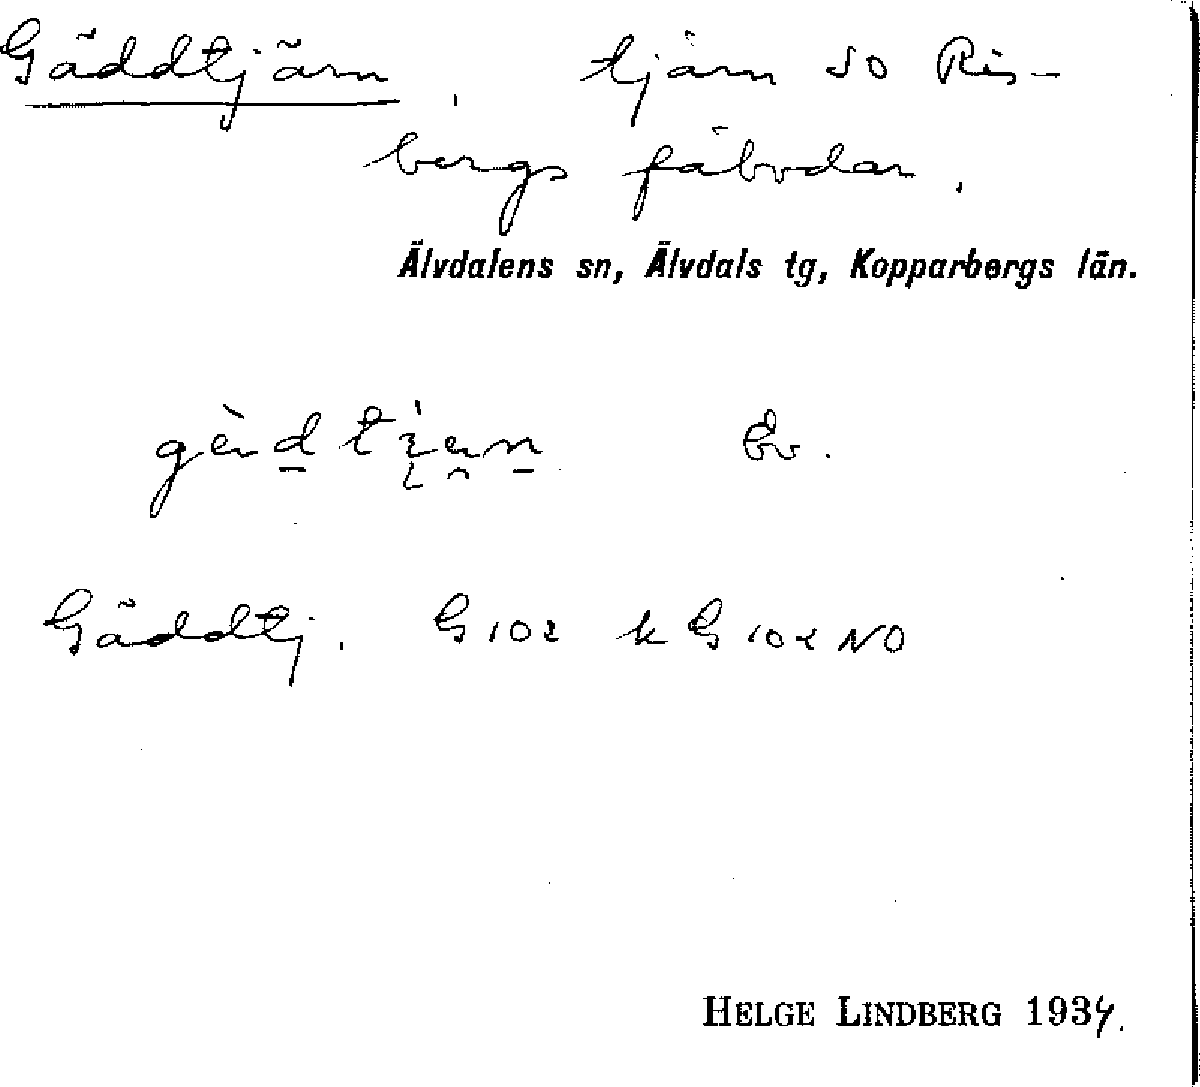 Gäddtjärn, tjärn SO Ris-
bergs fäbodar.
Älvdalens sn, Älvdals tg, Kopparbergs län.
Gäddtj. G 102 k G 102 NO
HELGE LINDBERG 1934.